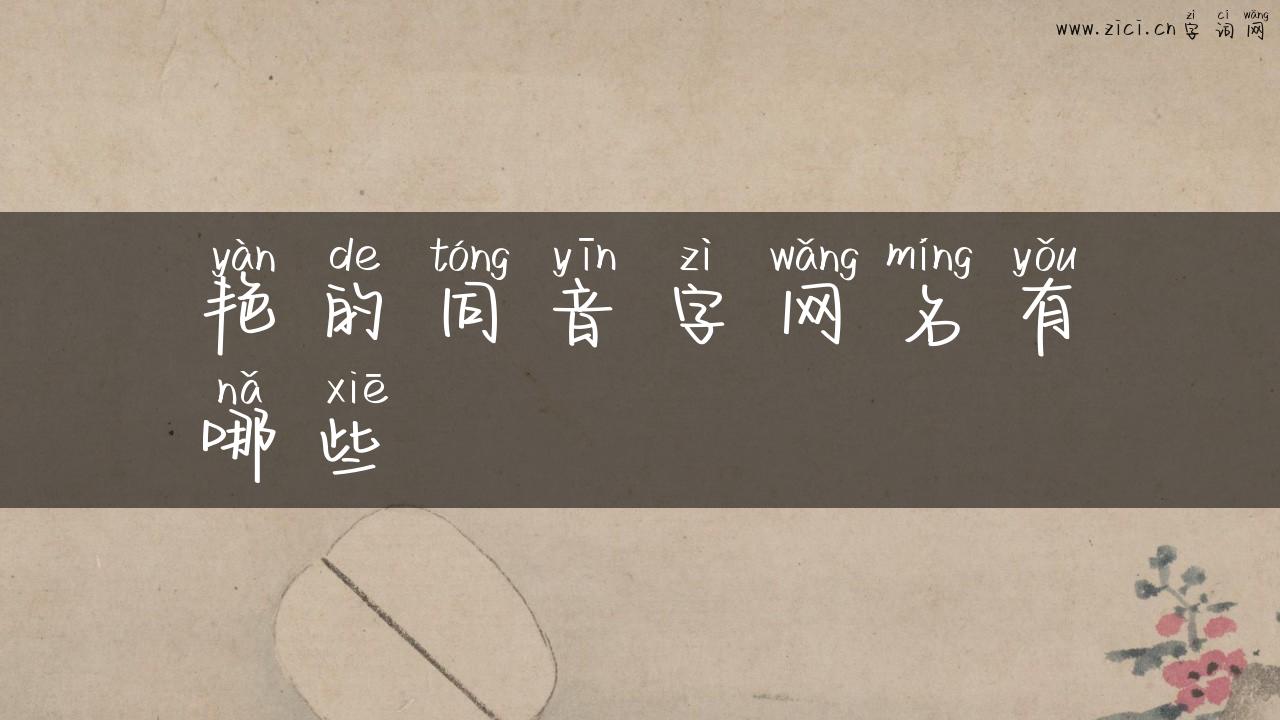 zì cí wǎng
www.zici.cn 字词网
yàn de tóng yīn zì wǎng míng yǒu
艳的同音字网名有
nǎ xiē
哪些